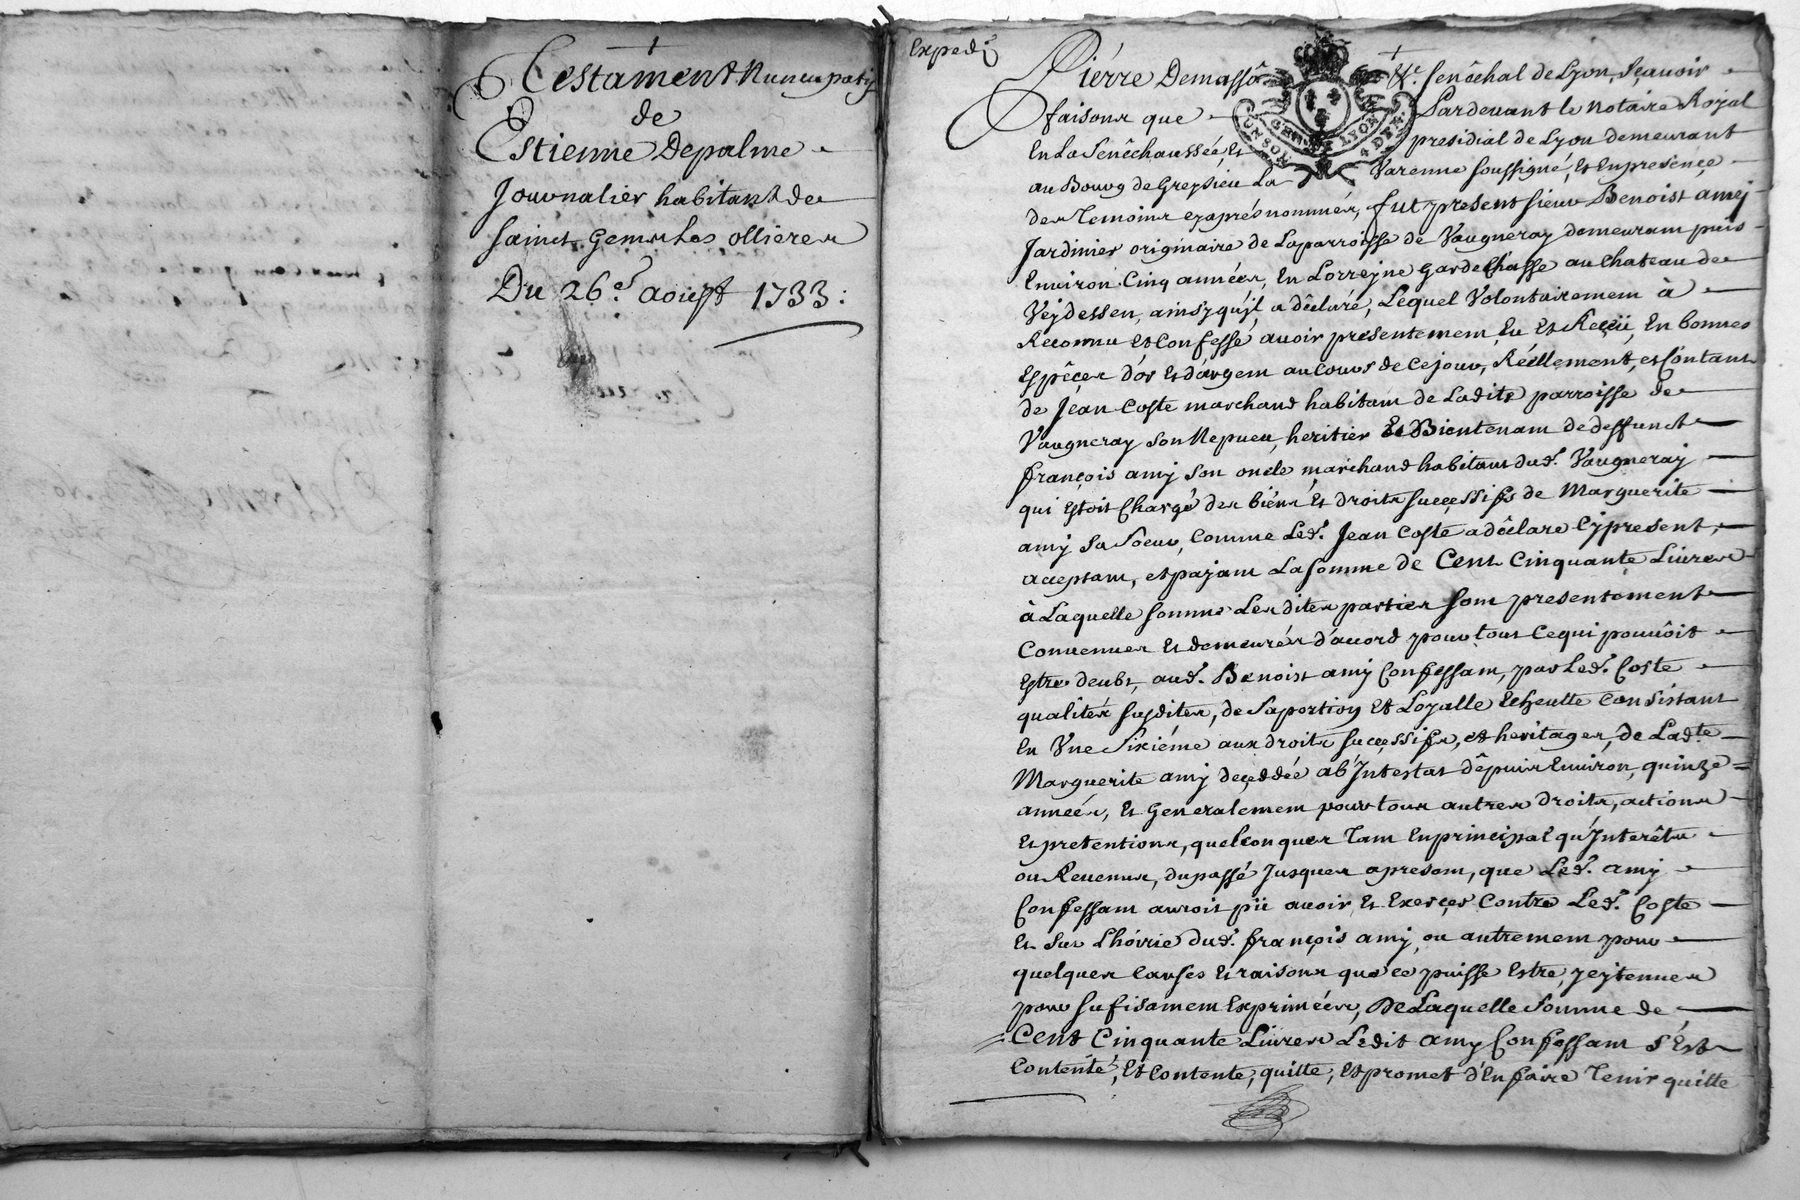 Testament Nuncupatif
de
Estienne Depalme
Journalier habitant de
Sainct Genis les ollieres
Du 26e. aoust 1733:
Expedé
Pierre Demassô &c. senêchal de Lyon, sçauoir
faisons que Pardeuant le Notaire Royal
En La Senêchaussée, Et presidial de Lyon demeurant
au Bourg de Gresieu La Varenne soussigné, Et En presence
des Temoins cyaprés nommés, fut present sieur Benoist amy
Jardinier originaire de Laparroisse de Vaugneray demeurant puis
Enuiron Cinq années, En Lorreyne garde Chasse au Chateau de
Veydessen, ainsy qu'jl a dêclaré, Lequel Volontairement à
Reconnu Et Confessé auoir presentement Eu Et Reçeü, En bonnes
Espêces d'or Et d'argent au Cours de Ce jour, Réellement, et Contant
de Jean Coste marchand habitant de Ladite parroisse de
Vaugneray son Nepueu, heritier Et Bientenant de deffunct
françois amy son oncle, marchand habitant dud. Vaugneray
qui Estoit Chargé des biens Et droits successifs de Marguerite
amy Sa Soeur, Comme Led. Jean Coste a dêclaré Cy present,
acceptant, et payant La somme de Cent Cinquante Liures
à Laquelle somme Les dites parties sont presentement
Conuenues Et demeurées d'acord pour tout Ce qui pouuoit
Estre deubt, aud. Benoist amy Confessant, par Led. Coste
qualités susdites, de Saportion Et Loyalle Echeutte Consistant
En Vne Sixiéme aux droits successifs, et heritages, de Ladte
Marguerite amy deceddée ab'Intestat dêpuis Enuiron, quinze
années, Et Generalement pour tous autres droits, actions
Et pretentions, quelconques Tant En principal qu'Interêts
ou Reuenus, du passé Jusques apresent, que Led. amy
Confessant auroit pü auoir Et Exerçer Contre Led. Coste
Et Sur L'hoirie dud. françois amy, ou autrement pour
quelques Causes Et raisons que ce puisse Estre, jcy tenues
pour sufisament Exprimées, De Laquelle Somme de
Cent Cinquante Liures Ledit amy Confessant s'Est
Contenté, Et Contente, quitte, Et promet d'En faire Tenir quitte